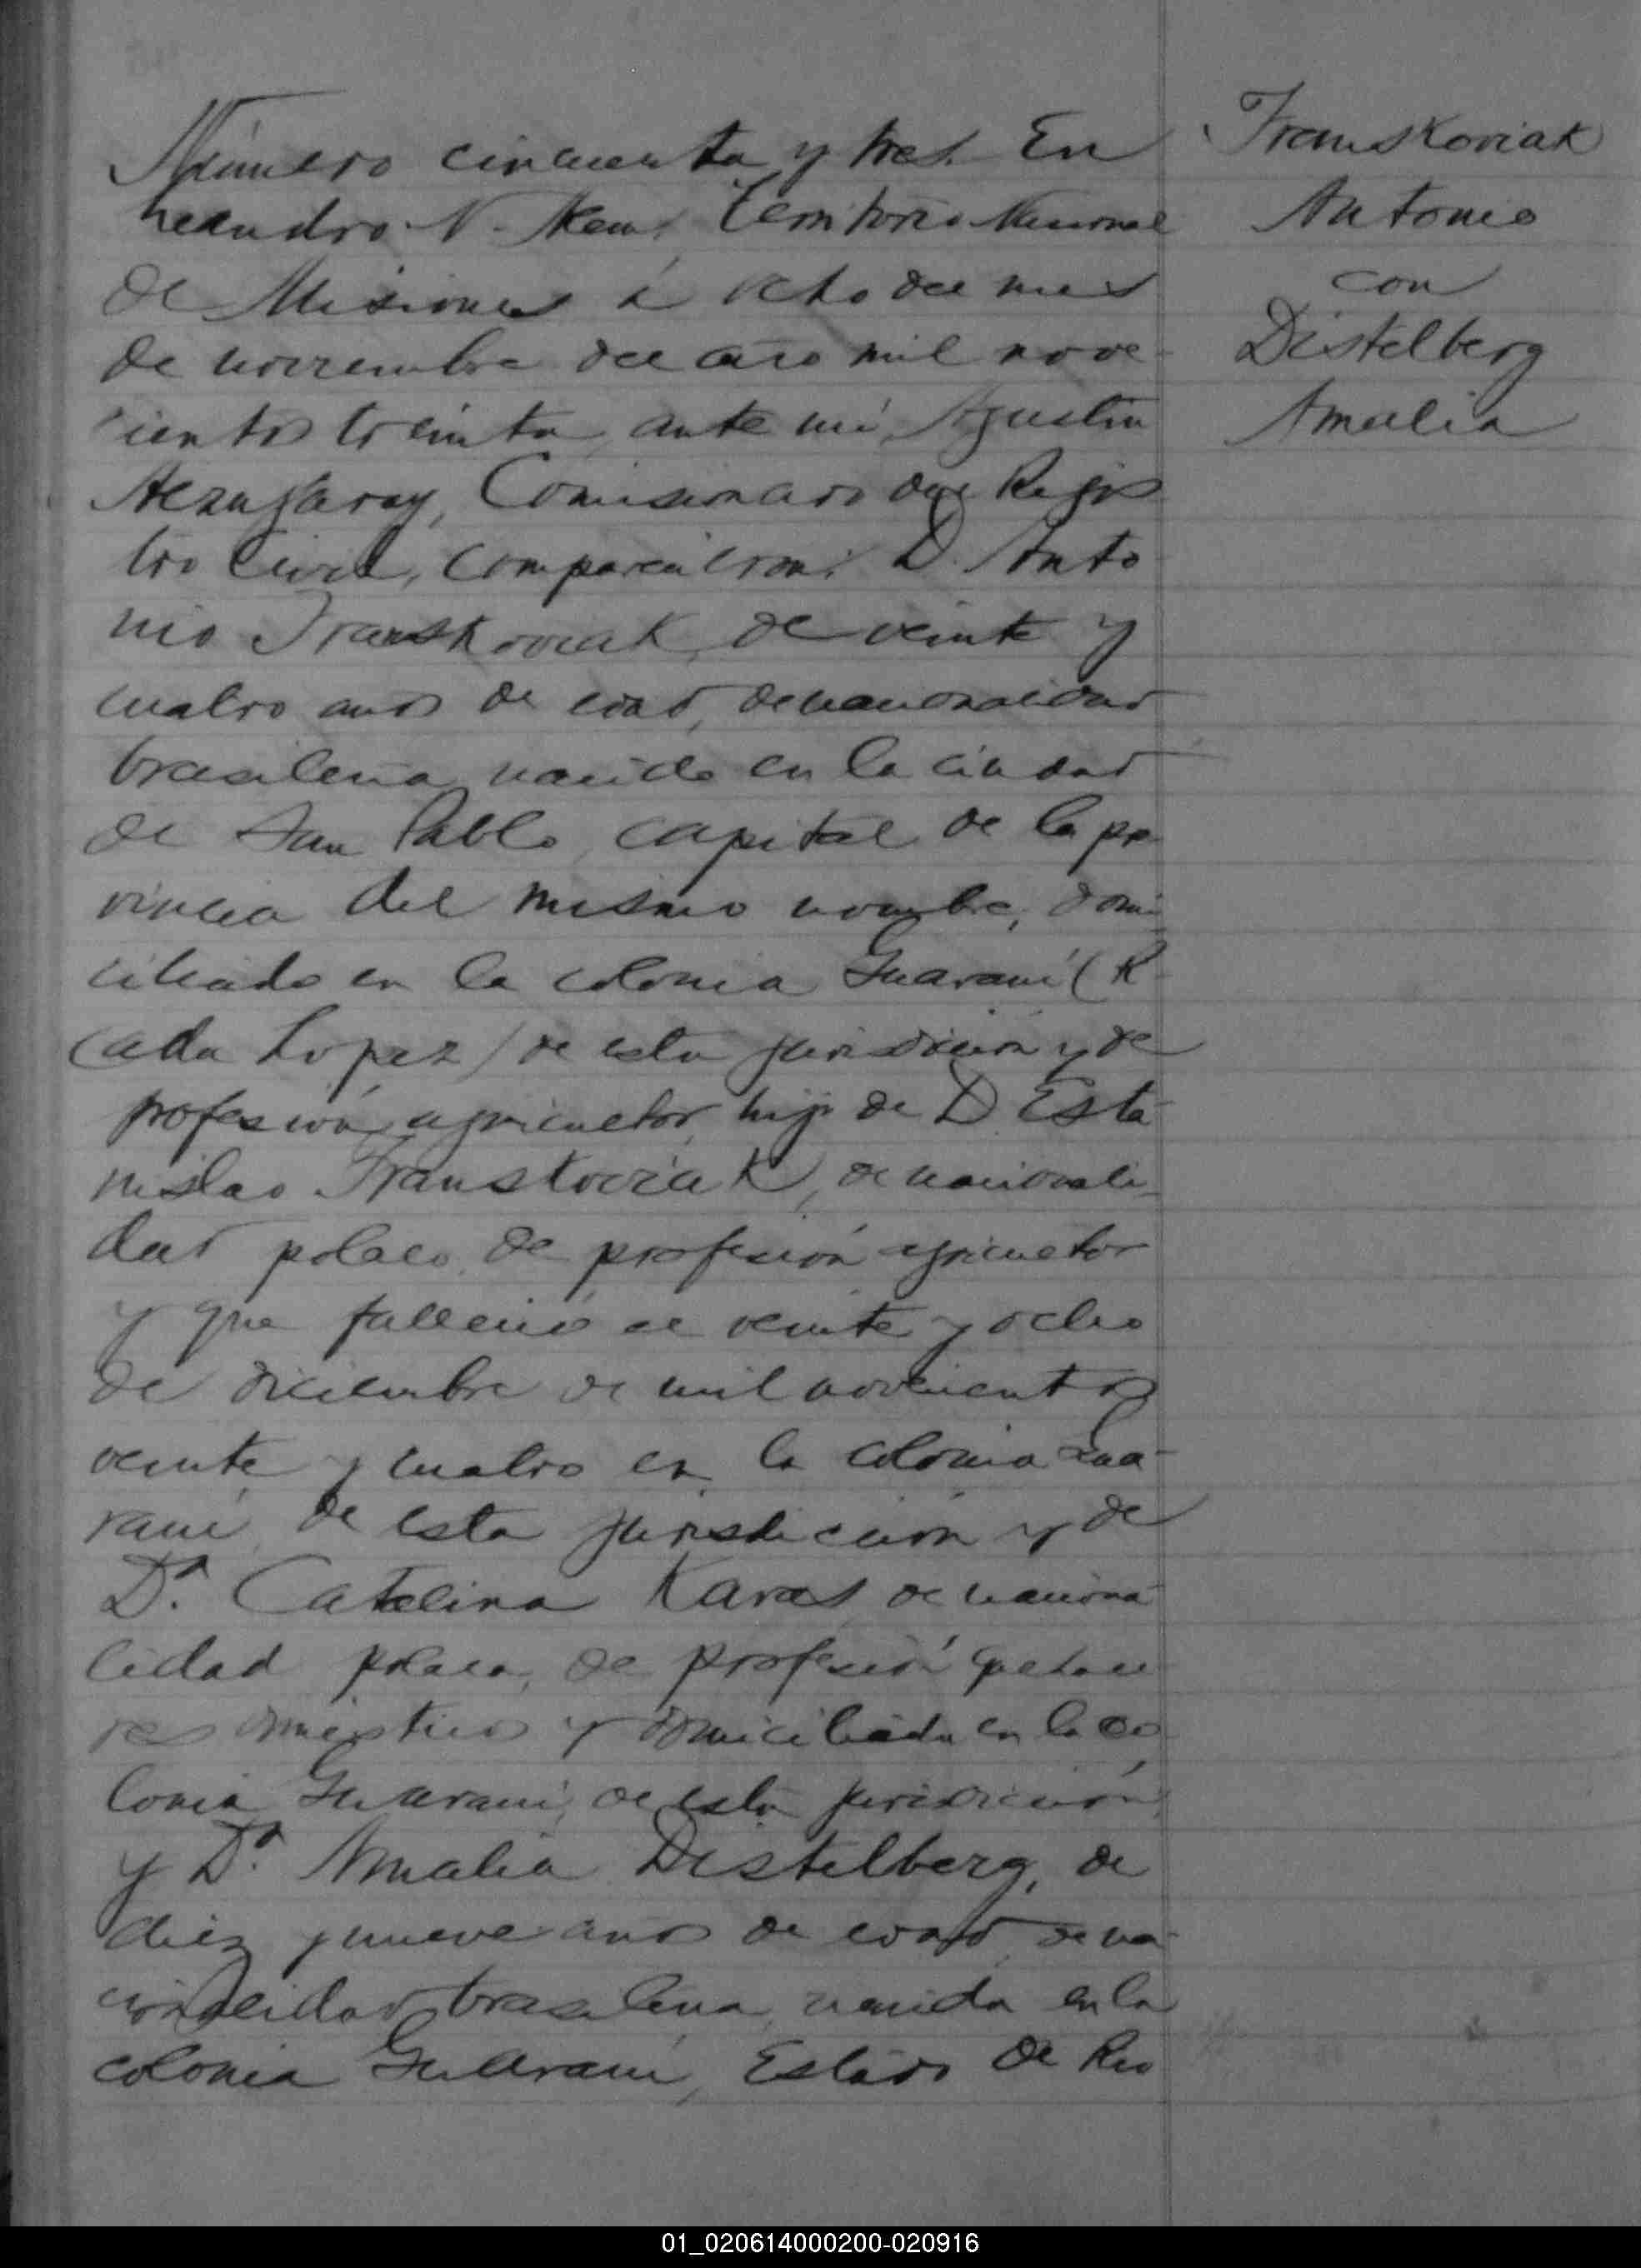 Número cincuenta y tres En
Leandro N. Alem, Territorio Nacional
de Misiones á ocho del mes
de noviembre del año mil nove-
cientos treinta, ante mí, Agustin
Comisionado del Regis
tro Civil, comparecieron: D. Anto
nio Franskoviak, de veinte y
cuatro años de edad, de nacionalidad
brasileña nacido en la ciudad
de San Pablo, capital de la pro
vincia del mismo nombre, domi
ciliado en la colonia Guaraní (Pi
cada Lopez) de esta jurisdicion y de
profesión agricultor, hijo de D. Esta
nislao Franskoviak, de nacionali-
dad polaco, de profesión agricultor
y que falleció el veinte y ocho
de diciembre de mil novecientos
veinte y cuatro en la colonia Gua-
raní, de esta jurisdicción y de
Dª. Catalina Karas de naciona
lidad polaca, de profesión quehace
res domésticos y domiciliada en la co
lonia Guaraní, de esta jurisdicción,
y Dª. Amalia Distelberg, de
diez y nueve años de edad, de na
cionalidad brasileña, nacida en la
colonia Guaraní, Estado de Rio
Franskoviak
Antonio
con
Distelberg
Amalia
01_020614000200-020916